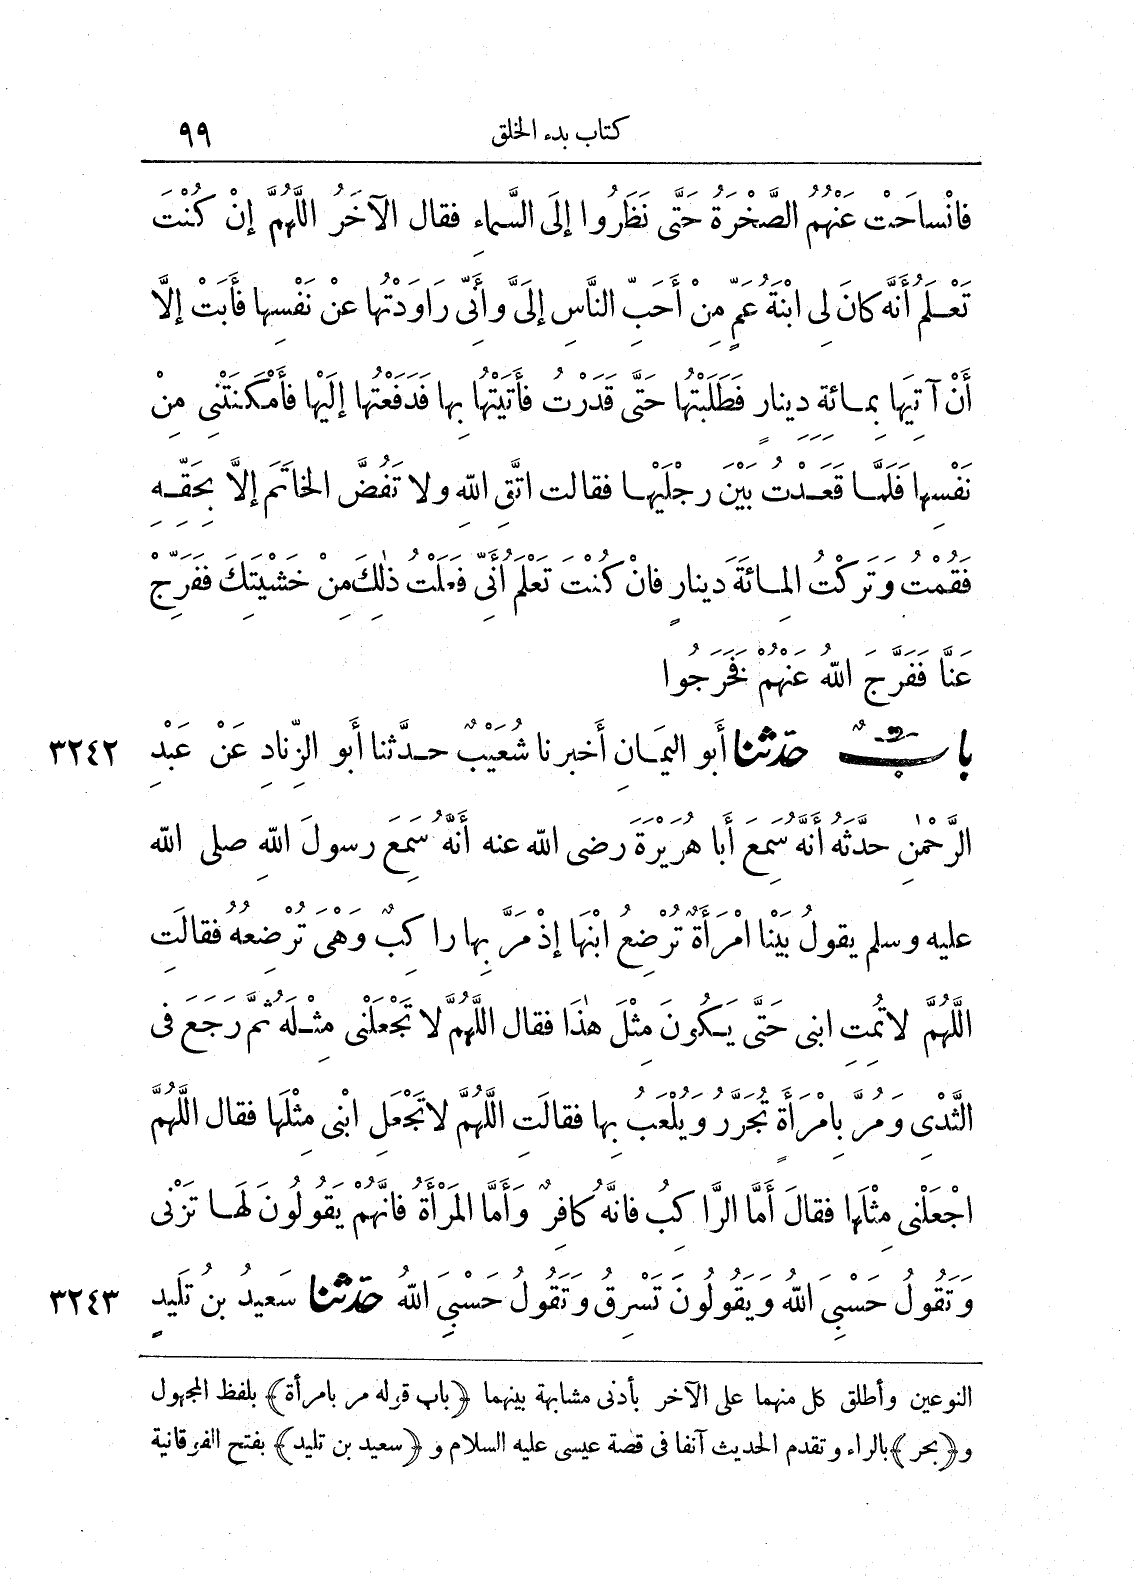 كتاب بدء الخلق ٩٩
فانْساحَتْ عَنْهُمُ الصَّخْرَةُ حَتَّى نَظَرُوا إلَى السَّماءِ فقال الآخَرُ اللَّهُمَّ إنْ كُنْتَ
تَعْلَمُ أنَّه كانَ لِى ابْنَةُ عَمٍّ مِنْ أَحَبِّ النَّاسِ إلَىَّ وأنِّى رَاوَدْتُها عنْ نَفْسِها فأَبَتْ إلَّا
أنْ آتِيَها بمِائةِ دِينارٍ فَطَلَبْتُها حَتَّى قَدَرْتُ فأَتَيْتُها بِها فَدَفَعْتُها إلَيْها فأَمْكَنَتْنِى مِنْ
نَفْسِها فَلَمَّا قَعَدْتُ بَيْنَ رِجْلَيْها فقالت اتَّقِ اللهَ ولا تَفُضَّ الخاتَمَ إلَّا بِحَقِّهِ
فَقُمْتُ وَتَرَكْتُ المِائَةَ دِينارٍ فانْ كُنْتَ تَعْلَمُ أنِّى فعلتُ ذٰلِكَ مِنْ خَشْيَتِكَ ففَرِّجْ
عَنَّا ففَرَّجَ اللهُ عَنْهُمْ فَخَرَجُوا
بابٌ حدّثنا أبو اليَمانِ أخبرنا شُعَيْبٌ حدَّثنا أبو الزِّنادِ عَنْ عَبْدِ ٣٢٤٢
الرَّحْمٰنِ حدَّثَهُ أنَّهُ سَمِعَ أبا هُرَيْرَةَ رضى الله عنه أنَّهُ سَمِعَ رسولَ اللهِ صلى الله
عليه وسلم يقولُ بَيْنا امْرَأَةٌ تُرْضِعُ ابْنَها إذْ مَرَّ بِها راكِبٌ وَهْىَ تُرْضِعُهُ فقالَت
اللَّهُمَّ لا تُمِتِ ابنى حَتَّى يَكُونَ مِثْلَ هٰذَا فقال اللَّهُمَّ لا تَجْعَلْنى مِثْلَهُ ثُمَّ رَجَعَ فى
الثَّدْىِ وَمُرَّ بِامْرَأَةٍ تُجَرَّرُ وَيُلْعَبُ بِها فقالَتِ اللَّهُمَّ لا تَجْعَلِ ابْنى مِثْلَها فقال اللَّهُمَّ
اجْعَلْنى مِثْلَها فقالَ أَمَّا الرَّاكِبُ فانَّهُ كافِرٌ وَأَمَّا المَرْأَةُ فانَّهُمْ يَقُولُونَ لَها تَزْنى
وَتَقُولُ حَسْبِىَ اللهُ وَيَقُولُونَ تَسْرِقُ وَتَقُولُ حَسْبِىَ اللهُ حدّثنا سَعيدُ بنُ تَلِيدٍ ٣٢٤٣
النوعين وأطلق كل منهما على الآخر بأدنى مشابهة بينهما ﴿باب قوله مر بامرأة﴾ بلفظ المجهول
و﴿يجر﴾ بالراء وتقدم الحديث آنفا فى قصة عيسى عليه السلام و ﴿سعيد بن تليد﴾ بفتح الفوقانية